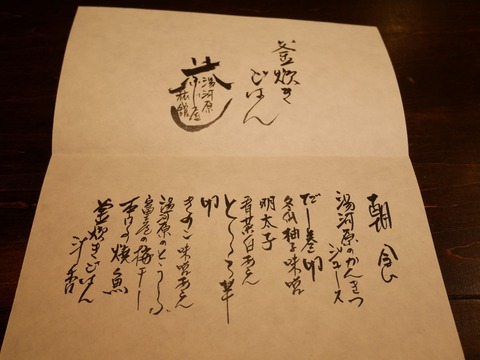 釜炊き
ごはん
湯河原
旅館
朝食
湯河原のかんきつ
ジュース
だし巻卵
冬瓜柚子味噌
明太子
青菜白あえ
とろろ芋
卵
きのこ味噌あえ
湯河原のとうふ
富士屋の梅干し
魚
釜炊きごはん
汁 香